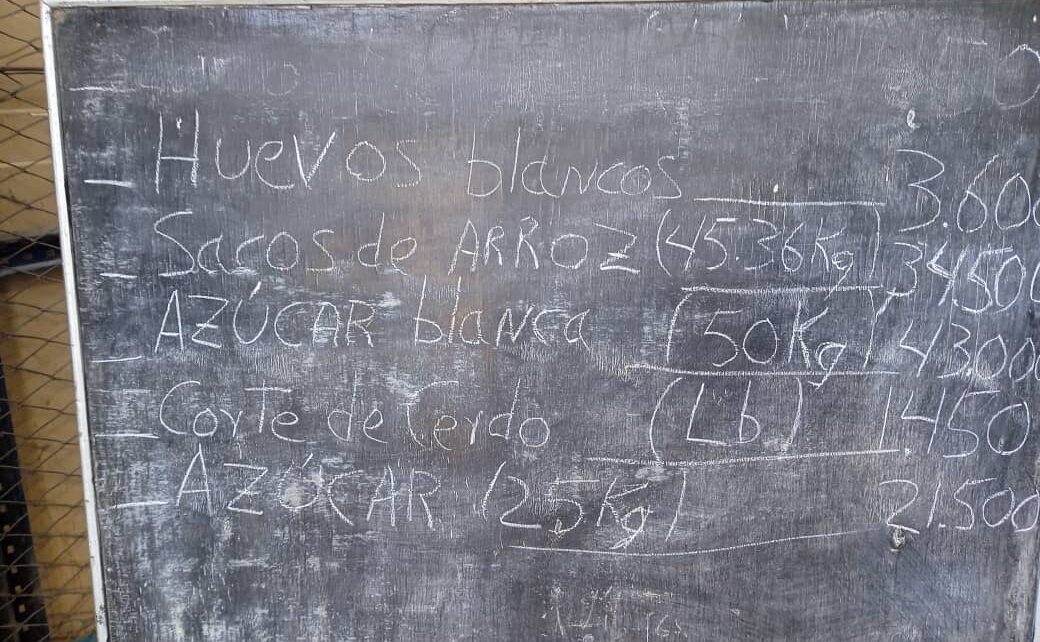 _ Huevos blancos 3.600
_ Sacos de ARROZ (45.36Kg) 34500
_ AZÚCAR blanca (50Kg) 43.000
_ Corte de Cerdo (Lb) 1450
_ AZÚCAR (25Kg) 21.500